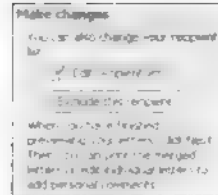 Make changes
You can also change your recipient
list
Edit recipient list
Exclude this recipient
When you have finished
previewing your letters, click Next.
Then you can print the merged
letters or edit individual letters to
add personal comments.